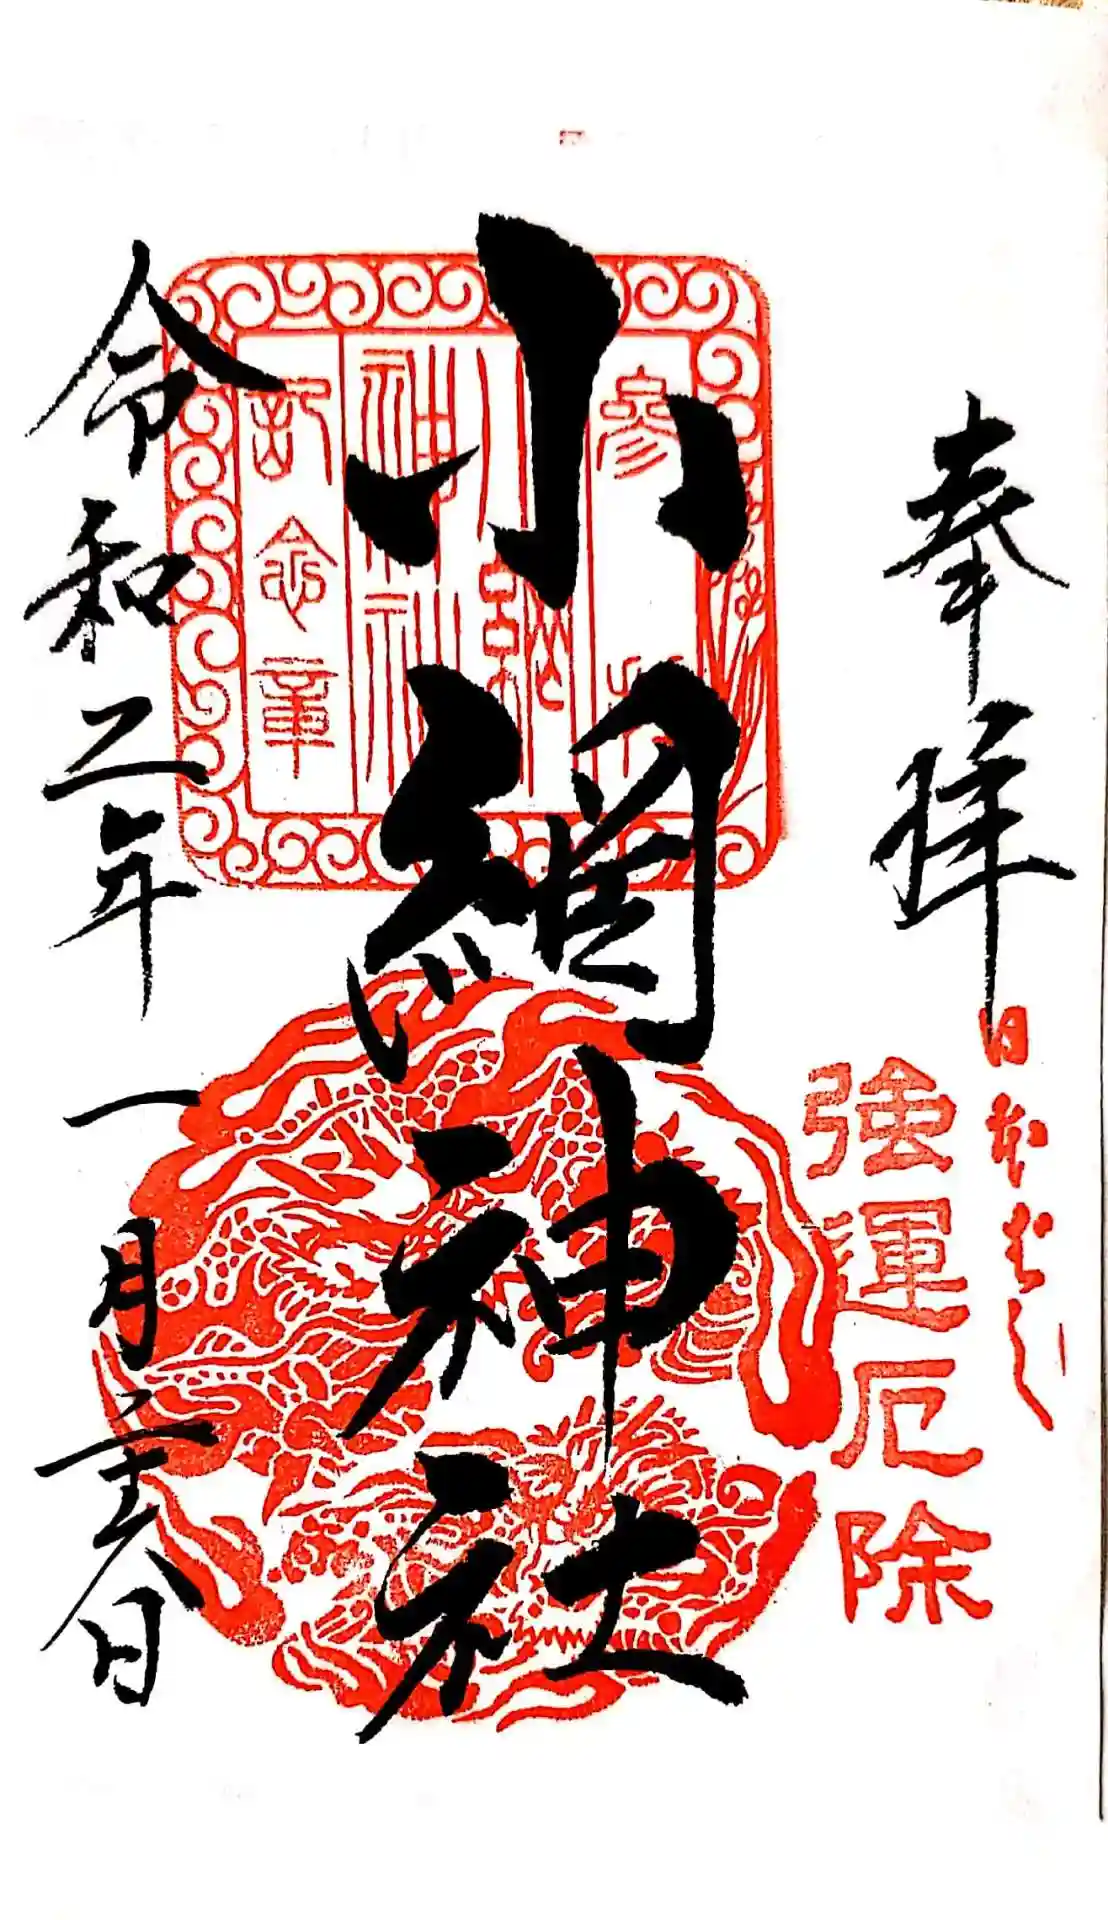 奉拝
日本ばし
強運厄除
小網神社
參拝
小網
神社
記念章
令和二年一月二十六日